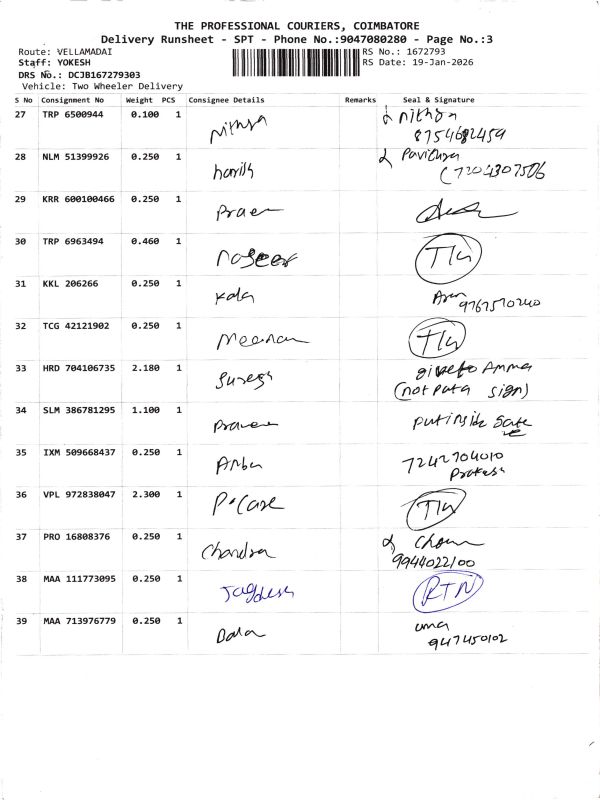 THE PROFESSIONAL COURIERS, COIMBATORE
Delivery Runsheet - SPT - Phone No.:9047080280 - Page No.:3
Route: VELLAMADAI RS No.: 1672793
Staff: YOKESH RS Date: 19-Jan-2026
DRS No.: DCJB167279303
Vehicle: Two Wheeler Delivery
S No Consignment No Weight PCS Consignee Details Remarks Seal & Signature
27 TRP 6500944 0.100 1 Nithya Nithya
8754682459
28 NLM 51399926 0.250 1 harish Pavithra
7204307506
29 KRR 600100466 0.250 1 Praven
30 TRP 6963494 0.460 1 naseer
31 KKL 206266 0.250 1 Kala Arun
9767570240
32 TCG 42121902 0.250 1
33 HRD 704106735 2.180 1 Suresh give to Amma
(not puta sign)
34 SLM 386781295 1.100 1 Praveen put inside Gate
35 IXM 509668437 0.250 1 Anbu 7242704010
Prakash
36 VPL 972838047 2.300 1 P.Care
37 PRO 16808376 0.250 1 Chandra
9944022100
38 MAA 111773095 0.250 1 Jagdesh RTN
39 MAA 713976779 0.250 1 Bala uma
947450102